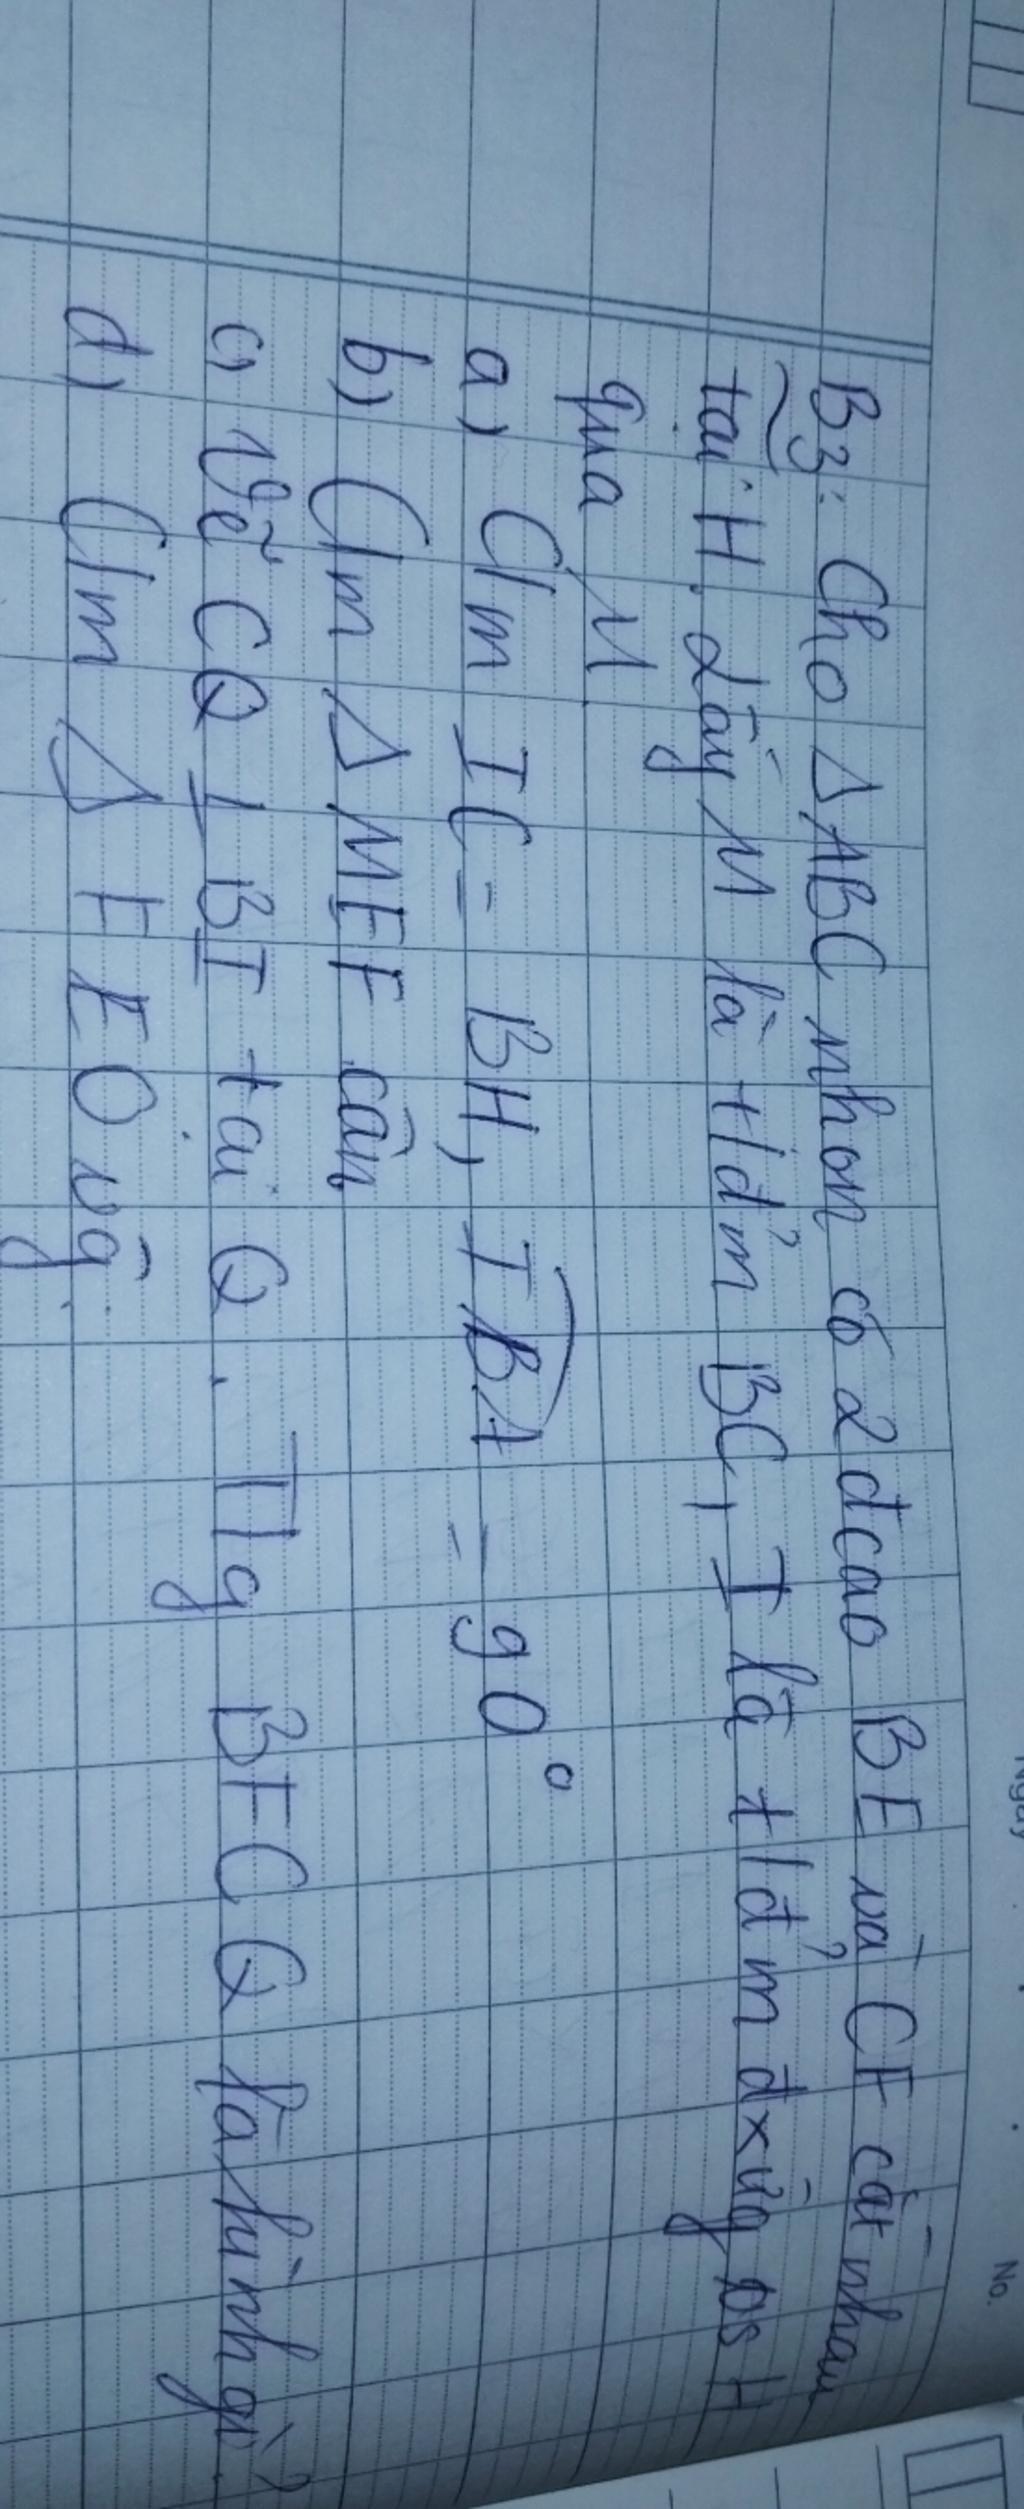 B3: Cho Δ ABC nhọn có 2 đcao BE và CF cắt nhau
tại H. Lấy M là t/đ'm BC, I là t/đ'm đxứg os H
qua M
a) C/m IC = BH, IBA = 90°
b) C/m Δ MEF cân
c) Vẽ CQ ⊥ BI tại Q. Tg BFCQ là hình gì?
d) C/m Δ FEQ vg.
No.